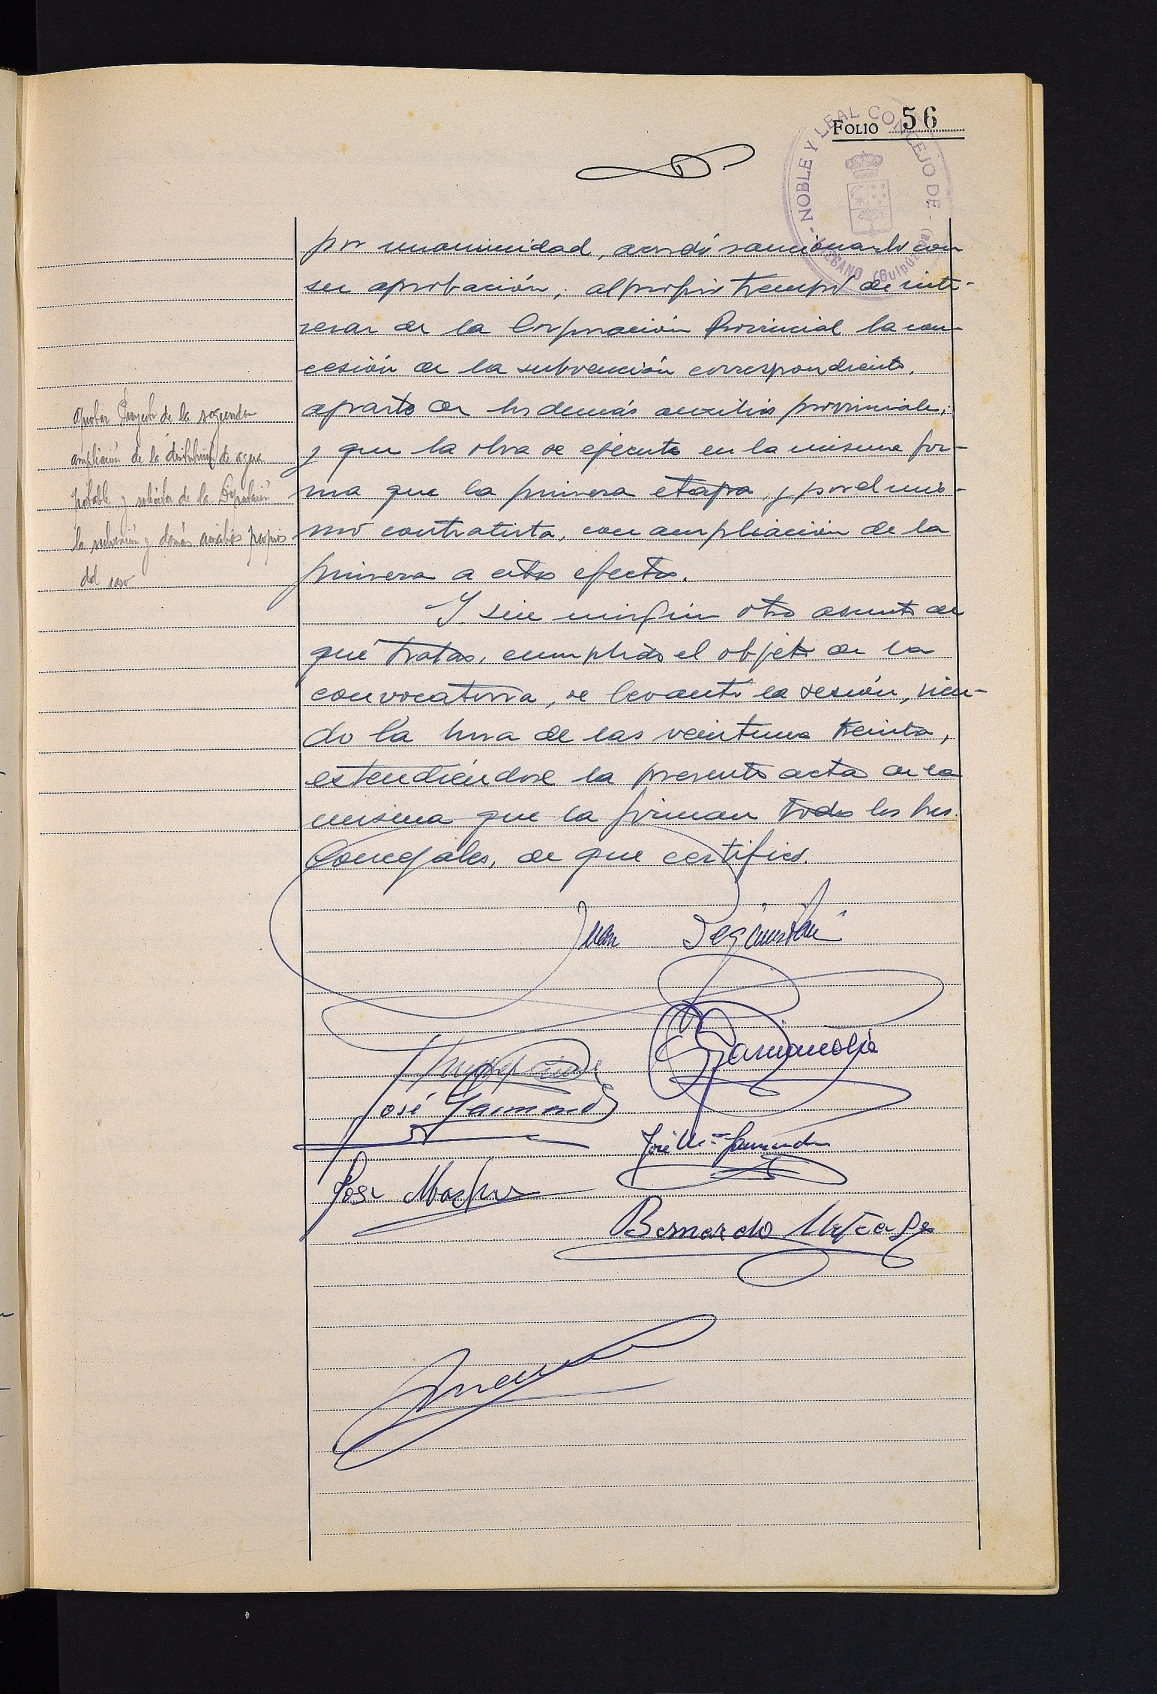 FOLIO 56
NOBLE Y LEAL CONCEJO DE
por unanimidad, acordó sancionarlo con
su aprobación, al propio tiempo de inte-
resar de la Corporación Provincial la con-
cesión de la subvención correspondiente,
aparte de los demás auxilios provinciales;
y que la obra se ejecute en la misma for-
ma que la primera etapa, y por el mis-
mo contratista, con ampliación de la
primera a estos efectos.
Aprobar Proyecto de la segunda
ampliación de la distribución de agua
potable y solicitar de la Diputación
la subvención y demás auxilios propios
del caso
Y sin ningún otro asunto de
qué tratar, cumplido el objeto de la
convocatoria, se levantó la sesión, sien-
do la hora de las veintiuna treinta,
estendiéndose la presente acta de la
misma que la firman todos los Sres.
Concejales, de que certifico.
Juan
José
José Mª
José
Bernardo